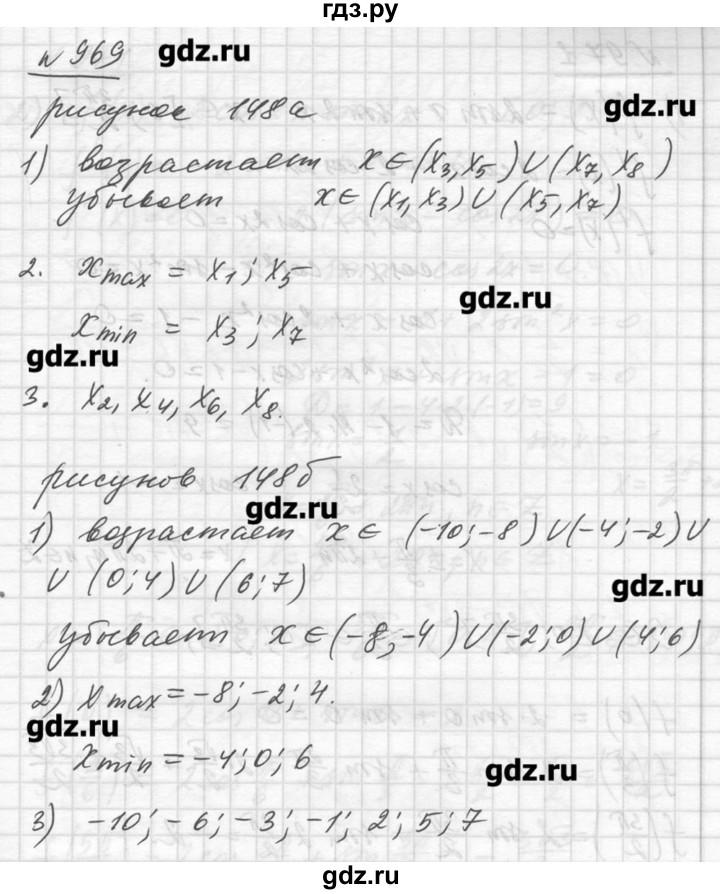 гдз.ру
№ 969 gdz.ru
рисунок 148а gdz.ru
1) возрастает x∈(x₃,x₅)∪(x₇,x₈)
убывает x∈(x₁,x₃)∪(x₅,x₇)
2. xmax = x₁; x₅
gdz.ru
xmin = x₃; x₇
gdz.ru
3. x₂, x₄, x₆, x₈.
рисунов 148б
gdz.ru
1) возрастает x∈ (-10;-8)∪(-4;-2)∪
∪ (0;4)∪(6;7) gdz.ru
убывает x∈(-8;-4)∪(-2;0)∪(4;6)
2) xmax=-8;-2;4.
gdz.ru
xmin=-4;0;6
gdz.ru
3) -10;-6;-3;-1;2;5;7
гдз.ру